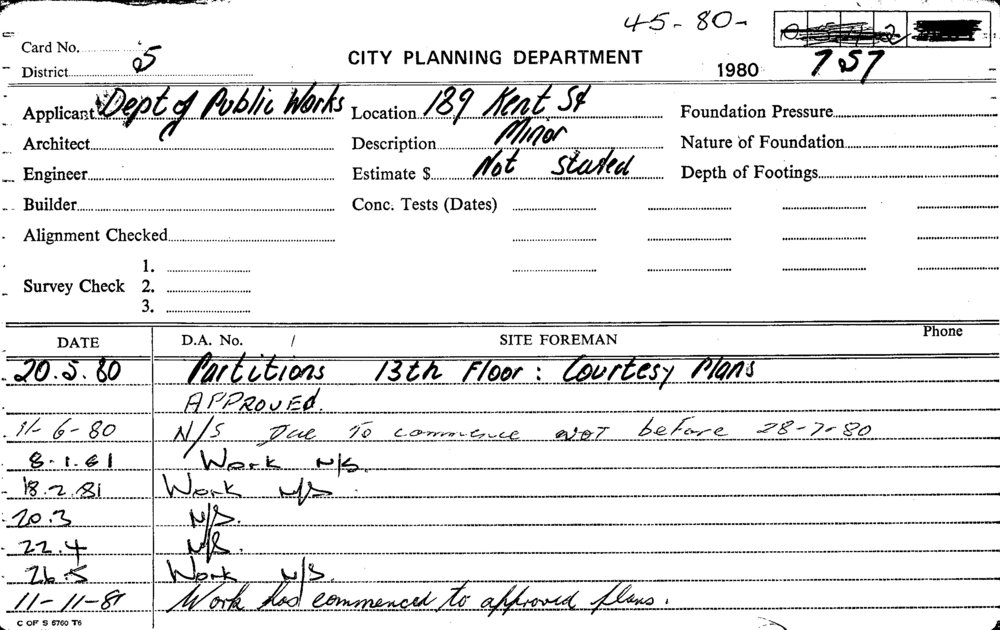 45-80-
Card No. 5
District
CITY PLANNING DEPARTMENT
1980 757
Applicant Dept of Public Works Location 189 Kent St Foundation Pressure
Architect Description Minor Nature of Foundation
Engineer Estimate $ Not stated Depth of Footings
Builder Conc. Tests (Dates)
Alignment Checked
1.
Survey Check 2.
3.
DATE D.A. No. / SITE FOREMAN Phone
20.5.80 Partitions 13th Floor: Courtesy Plans
APPROVED.
11-6-80 N/S Due To commence NOT before 28-7-80
8.1.81 Work N/S.
18.2.81 Work N/S.
20.3 N/S.
22.4 N/S.
26.5 Work N/S.
11-11-81 Work has commenced to approved plans.
C OF S 6760 T6